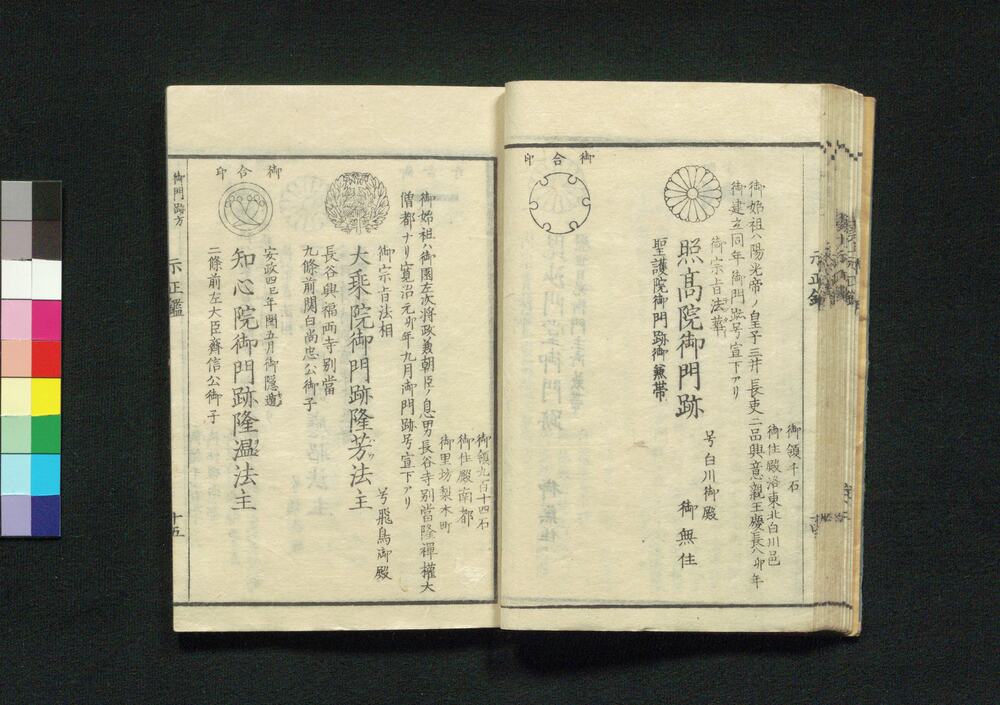 御領千石
御住殿洛東北白川邑
御始祖ハ陽光帝ノ皇子三井長吏二品興意親王慶長八卯年
御建立同年御門跡号宣下アリ
御宗旨法華
号白川御殿
照高院御門跡
御無住
聖護院御門跡御兼帯
御合印
御領九百十四石
御住殿南都
御里坊梨木町
御始祖ハ御園左次将政兼朝臣ノ息男長谷寺別當隆禅權大
僧都ナリ寛治元卯年九月御門跡号宣下アリ
御宗旨法相
号飛鳥御殿
大乘院御門跡隆芳法主
長谷興福両寺別當
九條前関白尚忠公御子
安政四巳年閏五月御隠遁
知心院御門跡隆温法主
二條前左大臣齊信公御子
御合印
御門跡方
示正鑑
十五